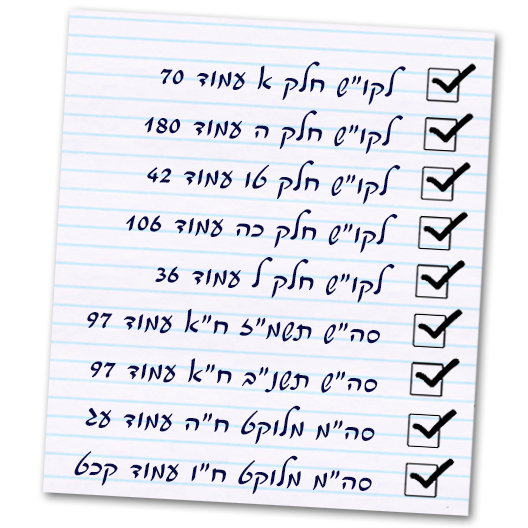 לקו"ש חלק א עמוד 70
לקו"ש חלק ה עמוד 180
לקו"ש חלק טו עמוד 42
לקו"ש חלק כה עמוד 106
לקו"ש חלק ל עמוד 36
סה"ש תשמ"ז ח"א עמוד 97
סה"ש תשנ"ב ח"א עמוד 97
סה"מ מלוקט ח"ה עמוד עג
סה"מ מלוקט ח"ו עמוד קכט